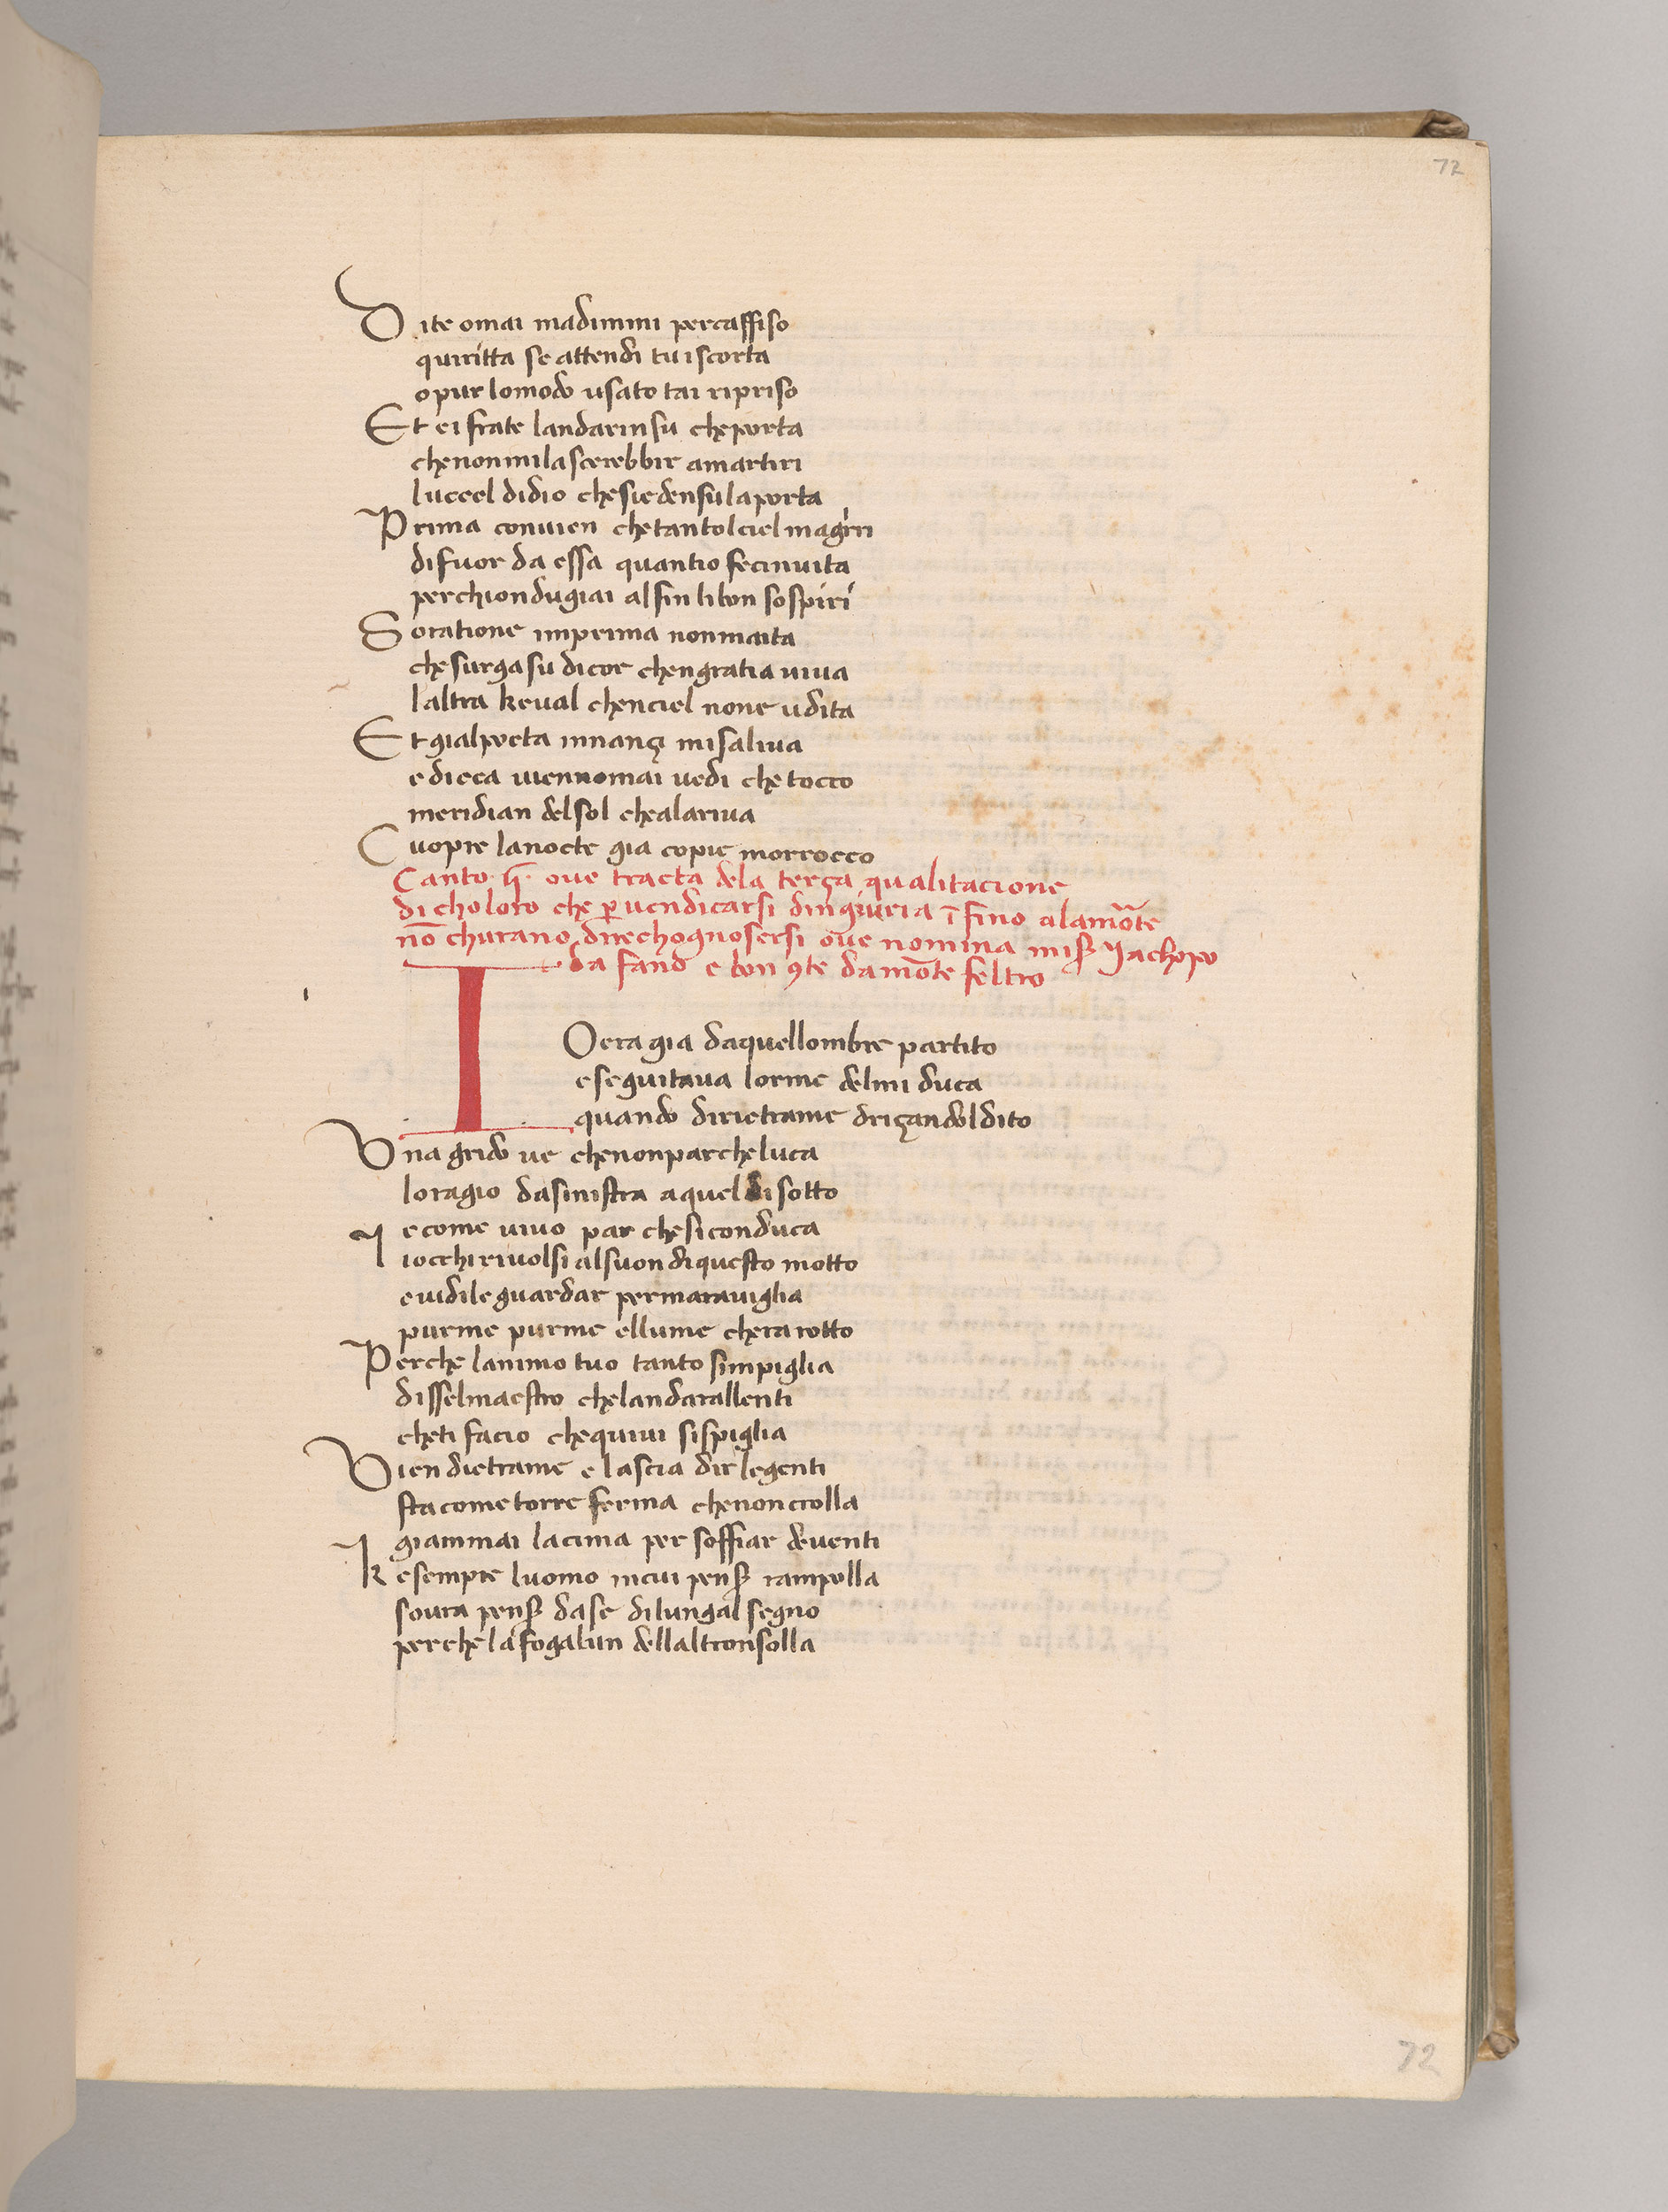 72
Dite omai madimmi percaffiso
quiritta se attendi tu iscorta
o pur lomodo usato tai ripriso
Et ei frate landarinsu cheporta
chenonmilascerebbir amartiri
lucceldidio chesiedensulaporta
Prima convien chetantolciel magiri
difuor da essa quantio fecinvita
perchiondugiai alfin libon sospiri
S oratione imprima nonmaita
chesurgasu dicor chengratia viva
laltra keval chenciel none udita
Et gialpoeta innanç misaliva
edicea viennomai vedi che tocco
meridian delsol chealariva
Cuopre lanocte gia copie morrocco
Canto. ii. ove tracta dela terça qualitacione
di choloro che p vendicarsi dingiuria ī fino alamōte
nō churano direchognosersi ove nomina mis Jachopo
da fano e bon 9te damōte feltro
IOera gia daquellombre partito
eseguitava lorme delmi duca
quando dirietrame driçandoldito
Vna grido ve chenonparcheluca
loragio dasinistra aquel disotto
ecome vivo par chesiconduca
Iiocchirivolsi alsuon diquesto motto
evidileguardar permaraviglia
purme purme ellume cherarotto
Perche lanimo tuo tanto simpiglia
disselmaestro chelandarallenti
cheti facio chequivi sispiglia
Vien dietrame e lascia dir legenti
sta cometorre ferma chenoncrolla
giammai lacima per soffiar deventi
Kesempre luomo incui pens rampolla
sovra pens dase dilungal segno
perchela fogalun dellaltronsolla
72